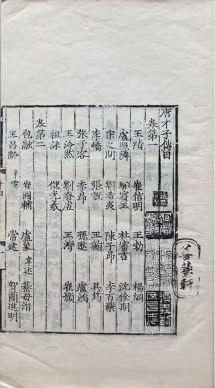 唐才子傳目
卷第一
王績 崔信明 王勃 楊炯
盧照鄰 駱賓王 杜審言 沈佺期
宋之問 劉希夷 陳子昂 李百藥
李嶠 張說 王翰 吳筠
張子容 李昂 孫逖 盧鴻
王泠然 劉眘虛 王灣 崔顥
祖詠 儲光羲
卷第二
包融 崔國輔 盧象 韋述 綦毋潛
王昌齡 常建 賀蘭進明